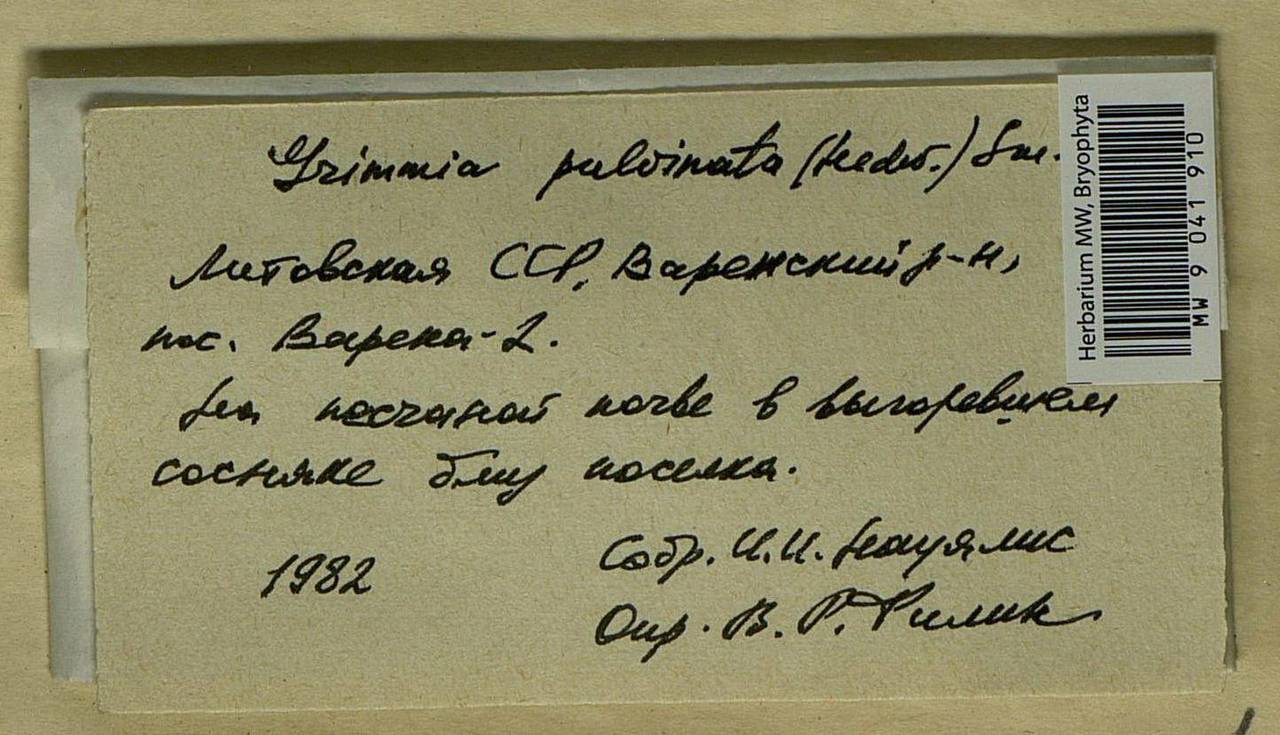 Grimmia pulvinata (Hedw.) Sm.
Литовская ССР, Варенский р-н,
пос. Варена-2.
На песчаной почве в выгоревшем
сосняке близ поселка.
1982
Собр. И.И. Наужалис
Опр. В. Р. Филин
Herbarium MW, Bryophyta
MW 9 041 910